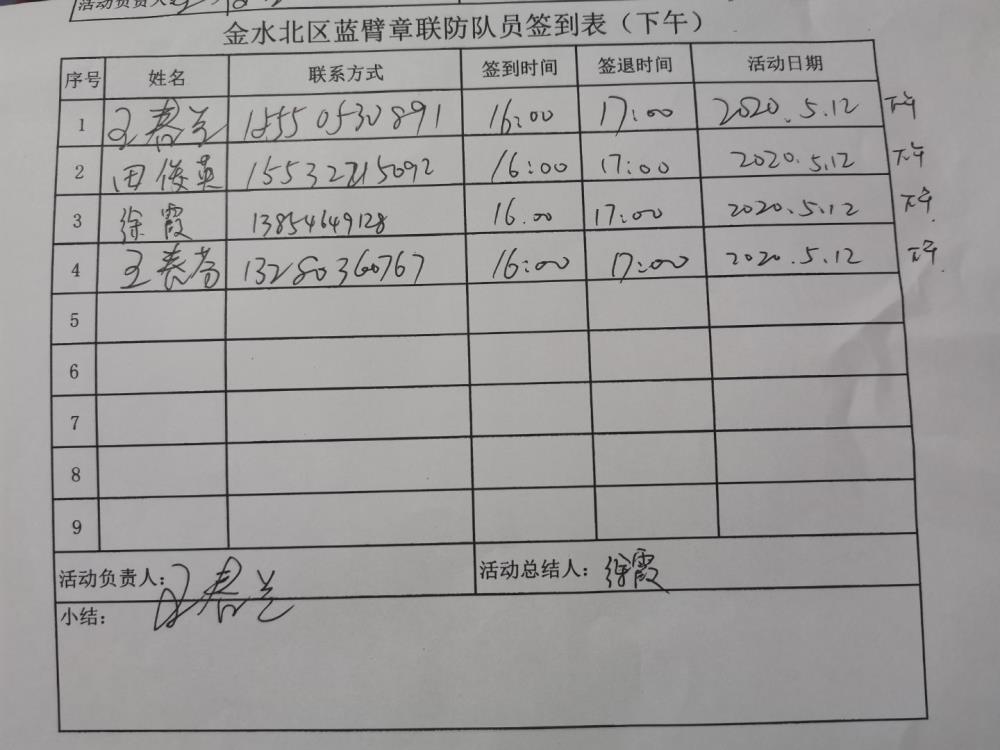 活动负责人:
金水北区蓝臂章联防队员签到表（下午）
序号 姓名 联系方式 签到时间 签退时间 活动日期
1 王春兰 15550530891 16:00 17:00 2020.5.12 下午
2 田俊英 15532715092 16:00 17:00 2020.5.12 下午
3 徐霞 13854649128 16.00 17:00 2020.5.12 下午
4 王春芳 13280360767 16:00 17:00 2020.5.12 下午
5
6
7
8
9
活动负责人：王春兰 活动总结人：徐霞
小结：